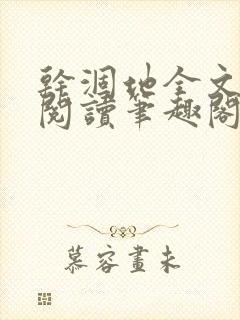 幹涸地全文
閱讀筆趣閣
慕容畫未